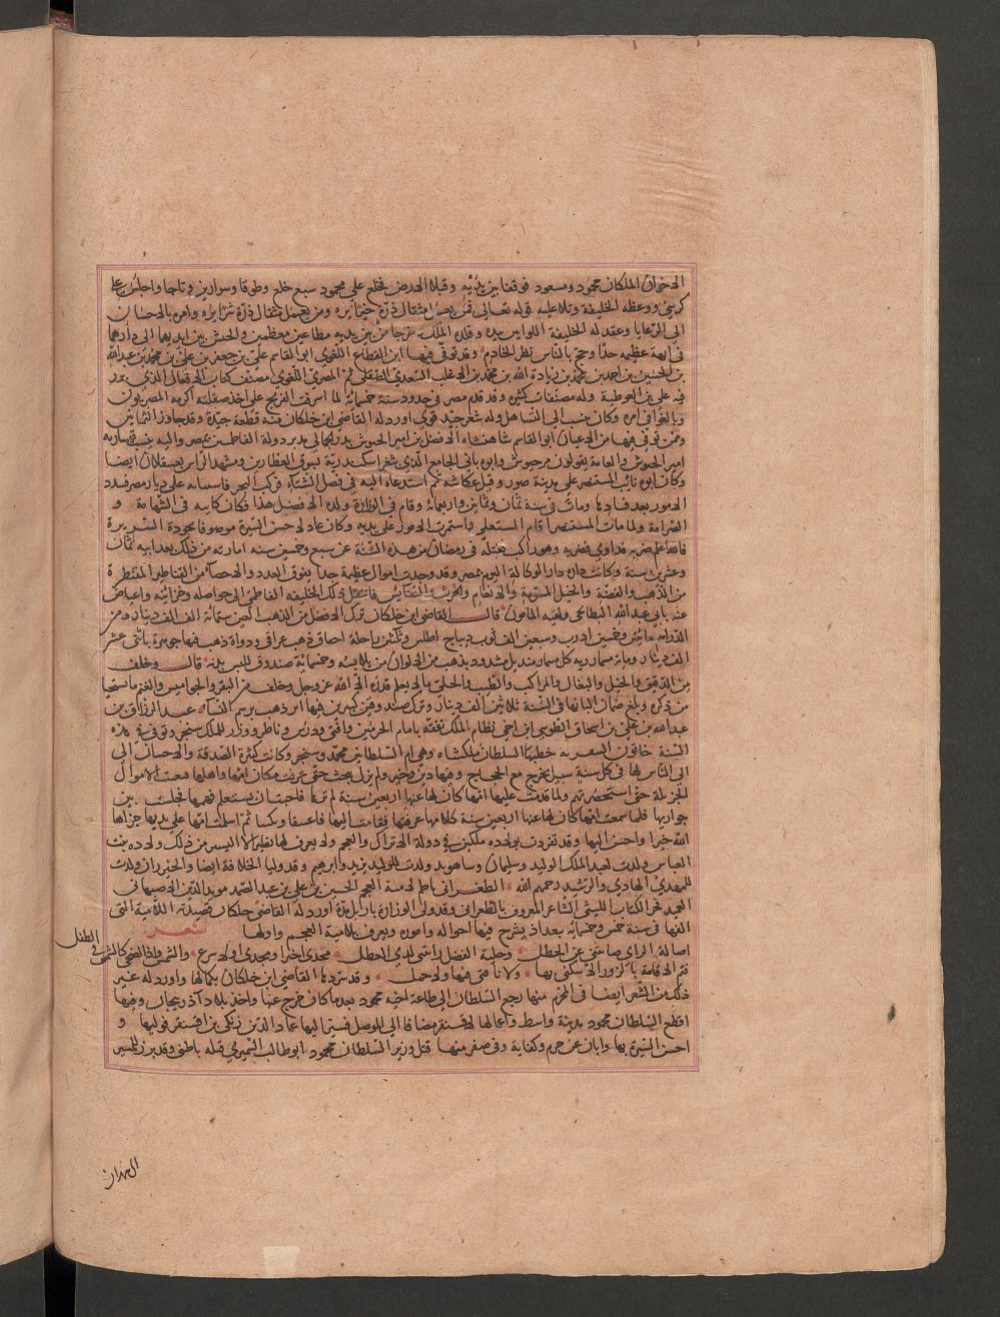 الاخوان الملكان محمود ومسعود فوقفا بين يديه وقبلا الارض فخلع على محمود سبع خلع وطوقا وسوارين وتاجا واجلس على
كرسي ووعظه الخليفة وتلا عليه قوله تعالى فمن يعمل مثقال ذرة خيرا يره ومن يعمل مثقال ذرة شرا يره وامره بالاحسان
الى الرعايا وعقد له الخليفة اللواين بيده وقلده الملك وخرجا من بين يديه مطاعين معظمين والجيش بين ايديهما الى دارهما
في ابهة عظيمة جدا وحج بالناس نظر الخادم وقد توفي فيها ابن القطاع اللغوي ابو القاسم علي بن جعفر بن علي بن محمد بن عبدالله
بن الحسين بن احمد بن محمد بن زيادة الله بن محمد بن الاغلب السعدي الصقلي ثم المصري اللغوي مصنف كتاب الافعال الذي برز
فيه على بن القوطية وله مصنفات كثيرة وقد قدم مصر في حدود سنة خمسمائة لما اشرفت الفرنج على اخذ صقلية اكرمه المصريون
وبالغوا في امره وكان ينسب الى التساهل وله شعر جيد قوي اورد له القاضي ابن خلكان منه قطعة جيدة وقد جاوز الثمانين
وممن توفي فيها من الاعيان ابو القاسم شاهنشاه الافضل بن امير الجيوش بدر الجمالي مدبر دولة الفاطميين بمصر واليه ينسب قيسارية
امير الجيوش والعامة يقولون مرجوش وابوه باني الجامع الذي بثغر اسكندرية بسوق العطارين ومشهد الراس بعسقلان ايضا
وكان ابوه نائب المستنصر على مدينة صور وقيل عكا ثم استدعاه اليه في فصل الشتاء فركب البحر فاستنابه على ديار مصر فسدد
الامور بعد فسادها ومات في سنة ثمان وثمانين واربعمائة وقام في الوزارة ولده الافضل هذا فكان كابيه في الشهامة و
الصرامة ولما مات المستنصر اقام المستعلي واستمرت الامور على يديه وكان عادلا حسن السيرة موصوفا بجودة السريرة
فالله اعلم ضربه فداوي فضربه وهو راكب فقتله في رمضان من هذه السنة عن سبع وخمسين سنة امارته من ذلك بعد ابيه ثمان
وعشرين سنة وكانت داره دار الوكالة اليوم بمصر وقد وجدت اموال عظيمة جدا يفوق العدد والاحصاء من القناطير المقنطرة
من الذهب والفضة والخيل المسومة والانعام والحرث والنفايس فانتقل ذلك الخليفة الفاطمي الى حواصله وخزائنه واعتاض
عنه بابي عبدالله البطائحي ولقبه المامون قال القاضي ابن خلكان ترك الافضل من الذهب العين ستمائة الف الف دينار ومن
الدراهم مائتين وخمسين اردب وسبعين الف ثوب ديباج اطلس وثلاثين راحلة احقاق ذهب عراقي ودواة ذهب فيها جوهرة باثنى عشر
الف دينار ومائة مسمار زنة كل مسمار منديل مشدود بذهب من الالوان من ملابسه وخمسمائة صندوق للبس بدنه قال وخلف
من الرقيق والخيل والبغال والمراكب والطيب والحلي ما لا يعلم قدره الا الله عز وجل وخلف من البقر والجواميس والغنم ما يستحيا
من ذكره وبلغ ضمان البانها في السنة ثلاثين الف دينار وترك صندوقين كبيرين فيها ابر ذهب برسم النساء عبد الرزاق بن
عبدالله بن علي بن اسحاق الطوسي ابن اخي نظام الملك تفقه بامام الحرمين وافتى ودرس وناظر ووزر للملك سنجر وتوفي في هذه
السنة خاتون السفرية حظية السلطان ملكشاه وهي ام السلطانين محمد وسنجر وكانت كثيرة الصدقة والاحسان الى
الى الناس لها في كل سنة سبيل يخرج مع الحجاج وفيها دين وخير ولم تزل تبحث حتى عرفت مكان امها واهلها فبعثت الاموال
الجزيلة حتى استحضرتهم ولما قدمت عليها امها كان لها عنها اربعين سنة لم ترها فاحبت ان تستعلم فهمها فجلست بين
جواريها فلما سمعت امها كلامها عرفتها فقامت اليها فاعتنقا وبكيا ثم اسلمت امها على يديها جزاها
الله خيرا واحسن اليها وقد تفردت بولادة ملكين في دولة الاتراك والعجم ولا يعرف لها نظير الا اليسير من ذلك ولادة بنت
العباس ولدت لعبد الملك الوليد وسليمان وشاهوند ولدت للوليد يزيد وابرهيم وقد وليا الخلافة ايضا والخيزران ولدت
للمهدي الهادي والرشيد رحمهم الله الطغرائي ناظم لامية العجم الحسين بن علي بن عبد الصمد مويد الدين الاصبهاني
العميد فخر الكتاب الليثي الشاعر المعروف بالطغرائي وقد ولي الوزارة باربل مدة اورد له القاضي خلكان قصيدته اللامية التي
الفها في سنة خمس وخمسمائة ببغداد يشرح فيها احواله واموره وتعرف بلامية العجم واولها شعر
اصالة الراي صانتني عن الخطل وحلية الفضل زانتني لدى العطل مجدي اخيرا ومجدي اولا شرع والشمس راد الضحى كالشمس
في الطفل
فيم الاقامة بالزوراء لا سكني بها ولا ناقتي فيها ولا جملي وقد سردها القاضي ابن خلكان بكمالها واورد له غير
ذلك من الشعر ايضا في المحرم منها رجع السلطان الى طاعة اخيه محمود بعد ما كان خرج عنها واخذ بلاد آذربيجان وفيها
اقطع السلطان محمود مدينة واسط واعمالها لاقسنقر مضافا الى الموصل فسير اليها عماد الدين زنكي بن اقسنقر فوليها و
احسن السيرة بها وابان عن حزم وكفاية وفي صفر منها قتل وزير السلطان محمود ابو طالب السميرمي قتله باطني وقد برز للمسير